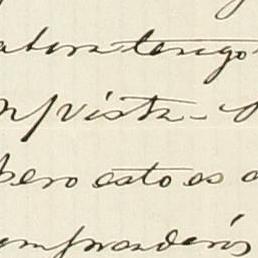 ahora tengo
vista -
pero esto es
comprenderás